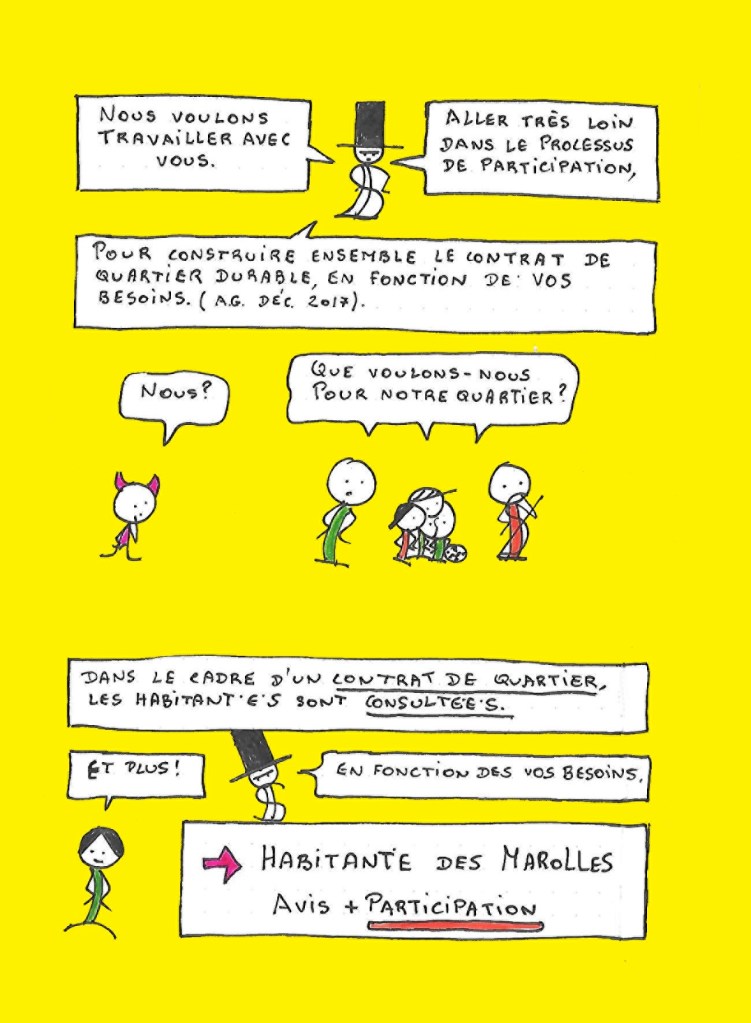 NOUS VOULONS
TRAVAILLER AVEC
VOUS.
ALLER TRÈS LOIN
DANS LE PROCESSUS
DE PARTICIPATION,
POUR CONSTRUIRE ENSEMBLE LE CONTRAT DE
QUARTIER DURABLE, EN FONCTION DE VOS
BESOINS. (A.G. DÉC. 2017).
NOUS?
QUE VOULONS-NOUS
POUR NOTRE QUARTIER?
DANS LE CADRE D'UN CONTRAT DE QUARTIER,
LES HABITANT·E·S SONT CONSULTÉ·E·S.
ET PLUS!
EN FONCTION DES VOS BESOINS.
→ HABITANTE DES MAROLLES
AVIS + PARTICIPATION